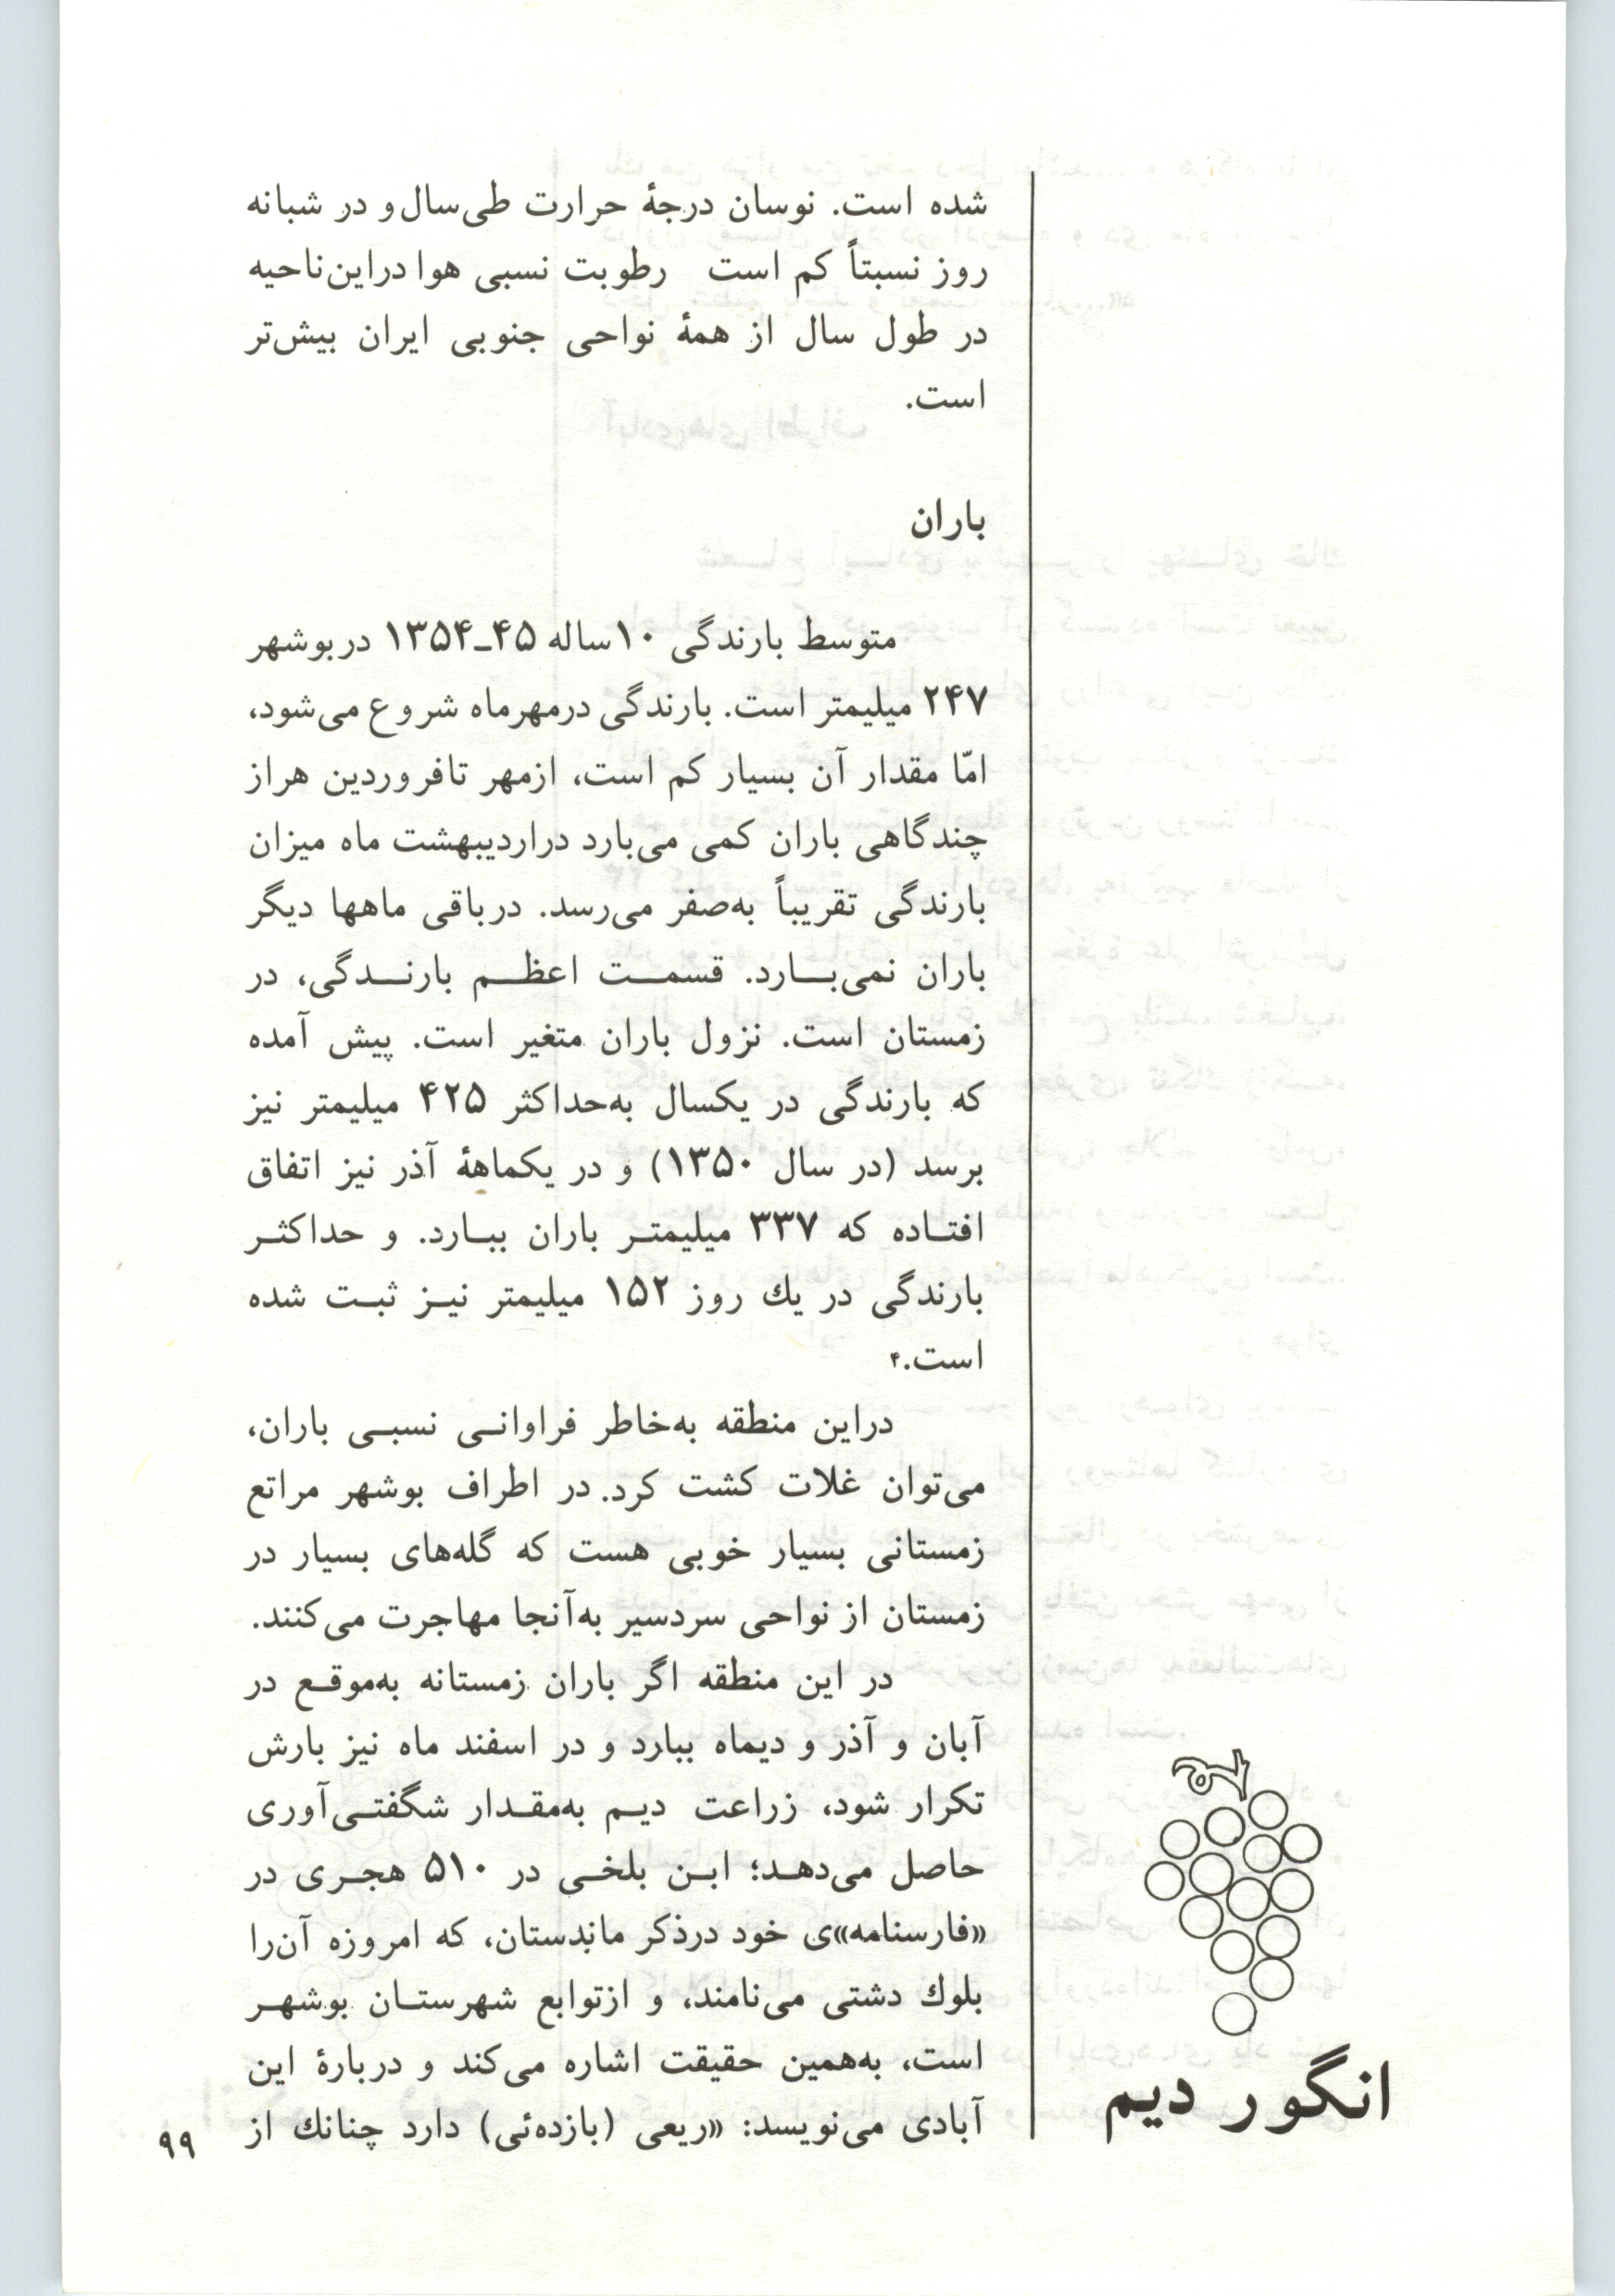 شده است. نوسان درجهٔ حرارت طی‌سال‌و در شبانه
روز نسبتاً کم است رطوبت نسبی هوا دراین‌ناحیه
در طول سال از همهٔ نواحی جنوبی ایران بیش‌تر
است.
باران
متوسط بارندگی ۱۰ساله ۴۵ـ۱۳۵۴ دربوشهر
۲۴۷ میلیمتر است. بارندگی درمهرماه شروع می‌شود،
امّا مقدار آن بسیار کم است، ازمهر تافروردین هراز
چندگاهی باران کمی می‌بارد دراردیبهشت ماه میزان
بارندگی تقریباً به‌صفر می‌رسد. درباقی ماهها دیگر
باران نمی‌بـارد. قسمـت اعظـم بارنـدگی، در
زمستان است. نزول باران متغیر است. پیش آمده
که بارندگی در یکسال به‌حداکثر ۴۲۵ میلیمتر نیز
برسد (در سال ۱۳۵۰) و در یکماههٔ آذر نیز اتفاق
افتـاده که ۳۳۷ میلیمتـر باران ببـارد. و حداکثـر
بارندگی در یك روز ۱۵۲ میلیمتر نیـز ثبـت شده
است.۴
دراین منطقه به‌خاطر فراوانـی نسبـی باران،
می‌توان غلات کشت کرد. در اطراف بوشهر مراتع
زمستانی بسیار خوبی هست که گله‌های بسیار در
زمستان از نواحی سردسیر به‌آنجا مهاجرت می‌کنند.
در این منطقه اگر باران زمستانه به‌موقـع در
آبان و آذر و دیماه ببارد و در اسفند ماه نیز بارش
تکرار شود، زراعت دیـم به‌مقـدار شگفتـی‌آوری
حاصل می‌دهـد؛ ابـن بلخـی در ۵۱۰ هجـری در
«فارسنامه»ی خود درذکر ماندستان، که امروزه آن‌را
بلوك دشتی می‌نامند، و ازتوابع شهرستـان بوشهـر
است، به‌همین حقیقت اشاره می‌کند و دربارهٔ این
آبادی می‌نویسد: «ریعی (بازده‌ئی) دارد چنانك از
انگور دیم
۹۹